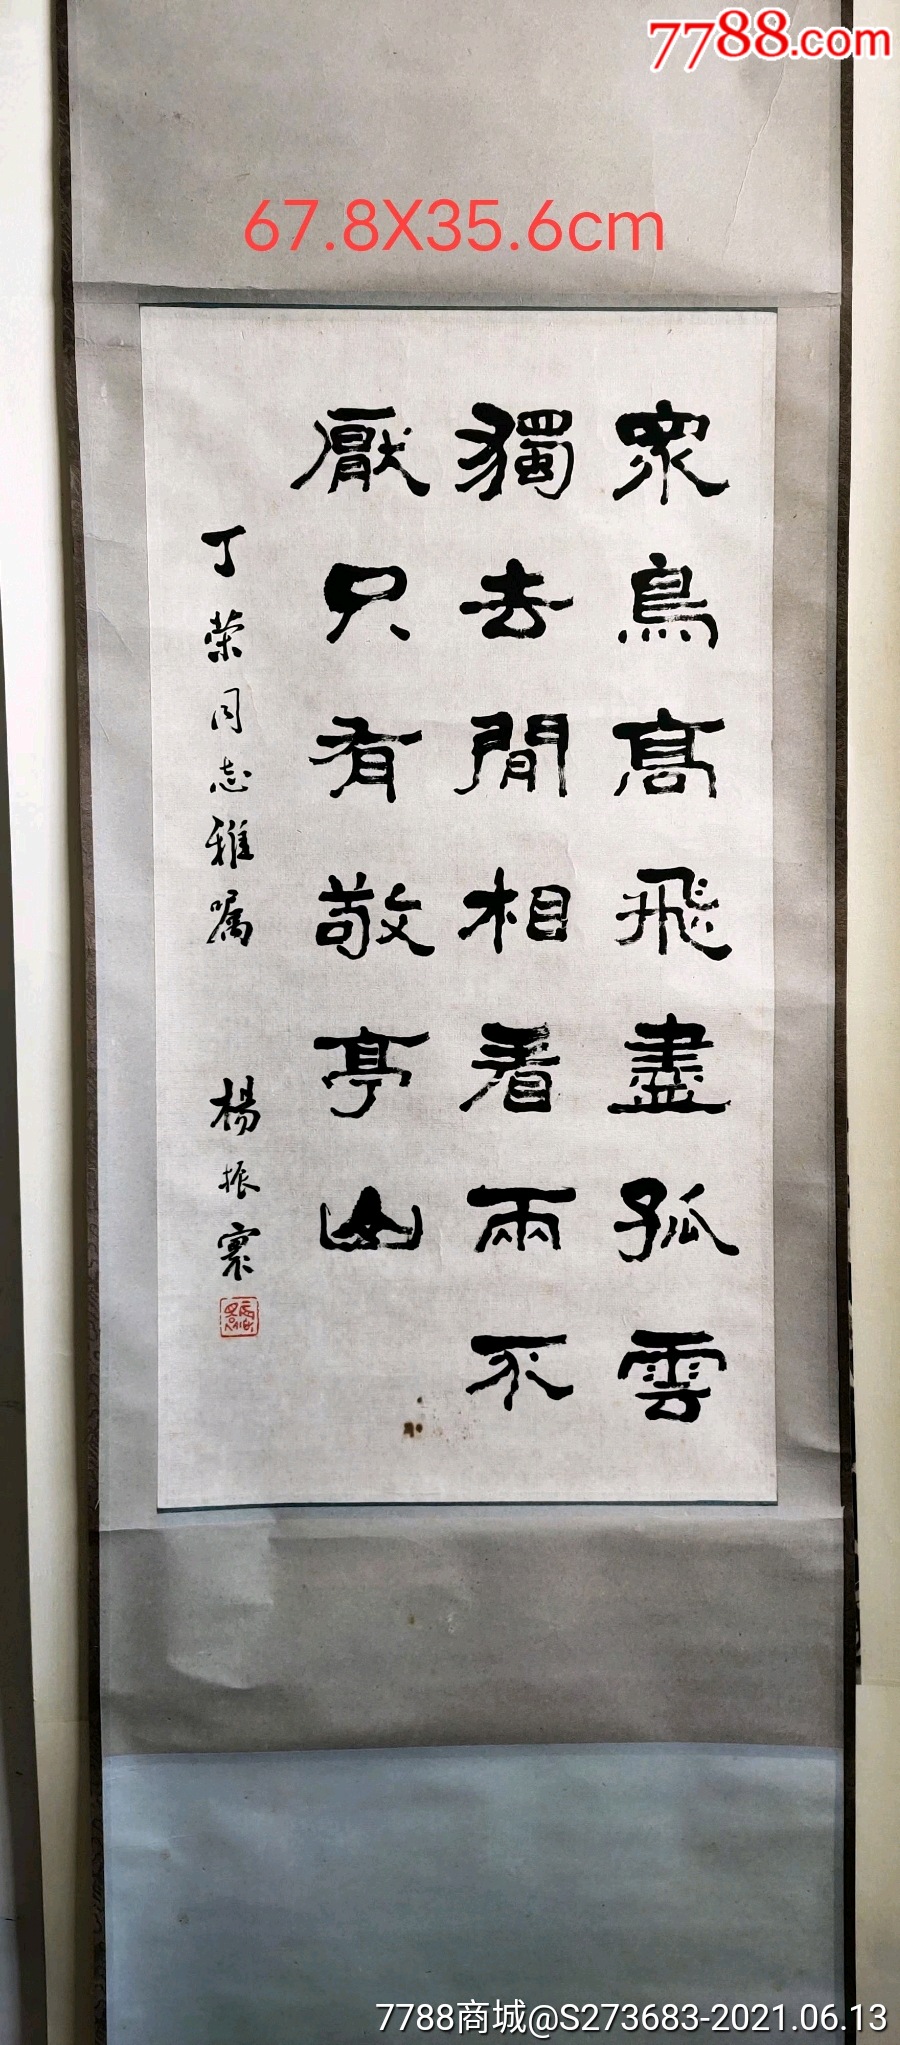 7788.com
67.8X35.6cm
眾鳥高飛盡孤雲
獨去閒相看兩不
厭只有敬亭山
丁荣同志雅嘱
楊振寰
7788商城@S273683-2021.06.13